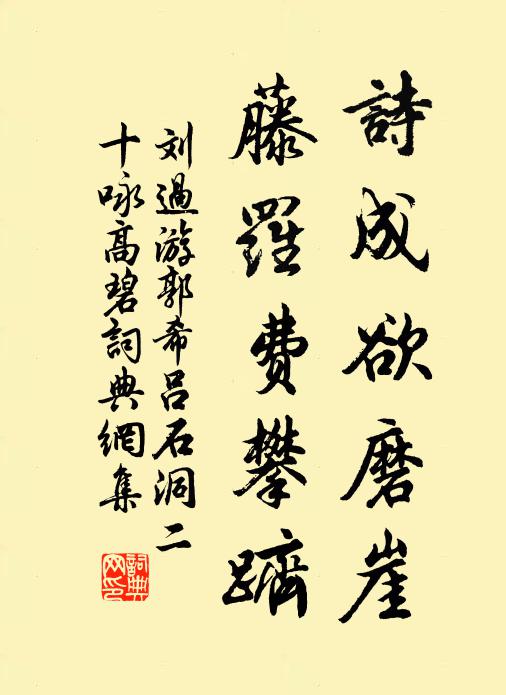 詩成欲磨崖
藤羅費攀躋
刘過游郭希吕石洞二
十咏高碧詞典網集
詞典网印